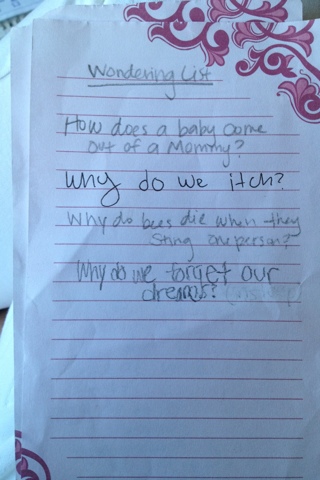 Wondering List
How does a baby come
out of a Mommy?
Why do we itch?
Why do bees die when they
Sting one person?
Why do we forget our
dreams?